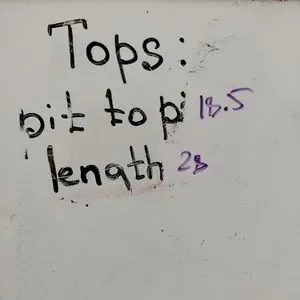 Tops:
pit to pi 18.5
length 28